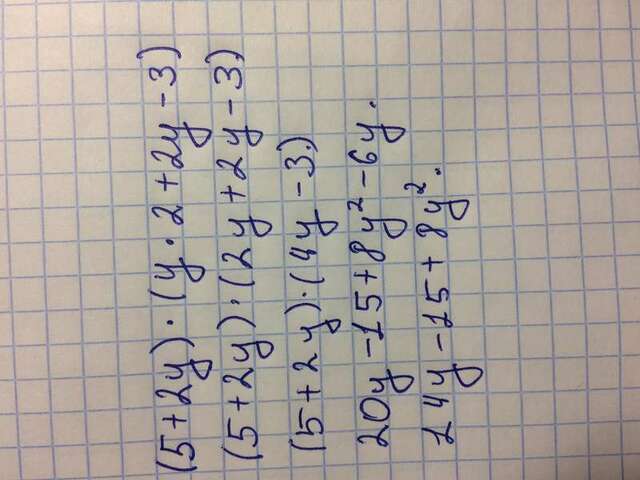 (5+2y)·(y·2+2y-3)
(5+2y)·(2y+2y-3)
(5+2y)·(4y-3.)
20y-15+8y²-6y.
14y-15+8y².